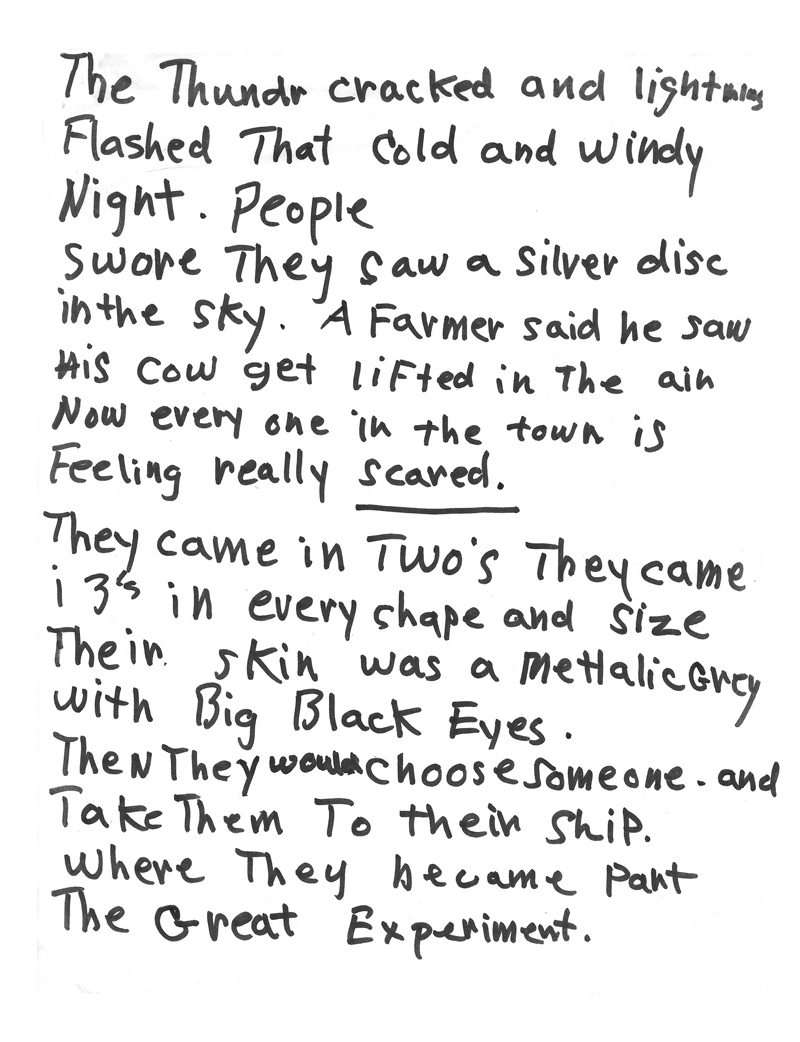 The Thundr cracked and lightning
Flashed That Cold and windy
Night. People
swore They saw a silver disc
in the sky. A Farmer said he saw
His cow get lifted in The air
Now every one in the town is
Feeling really scared.
They came in Two's They came
i 3's in every shape and size
Their skin was a Mettalic Grey
with Big Black Eyes.
Then They would choose someone. and
Take Them To their ship.
where They became part
The Great Experiment.